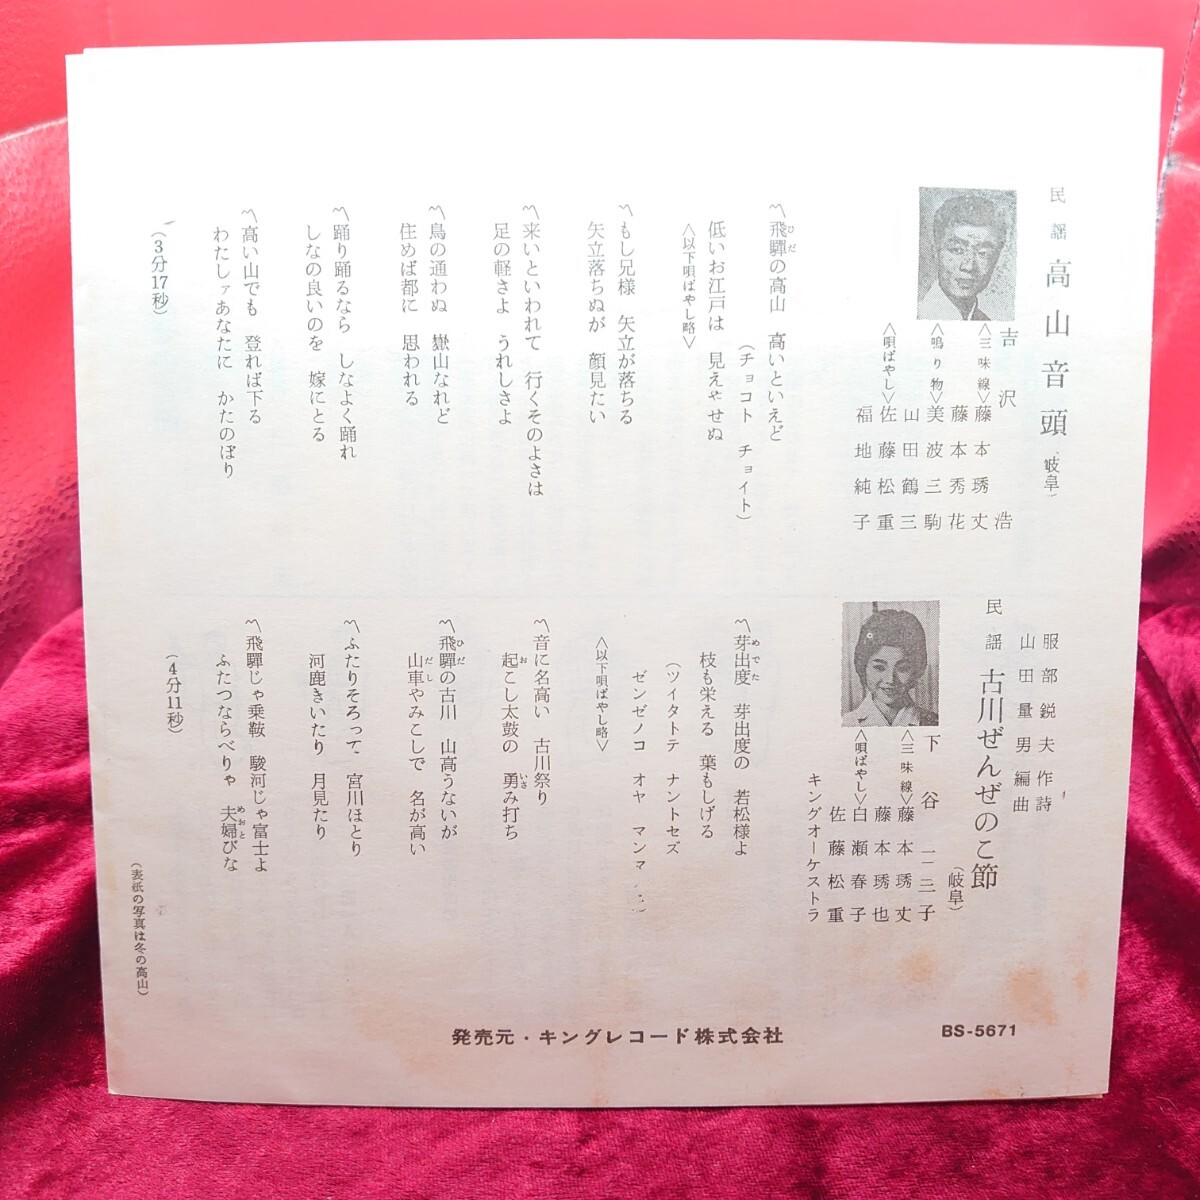 民謡 高山音頭（岐阜）
吉沢浩
〈三味線〉藤本琇丈
藤本秀花
〈鳴り物〉美波三駒
山田鶴三
〈唄ばやし〉佐藤松重
福地純子
〽飛騨の高山 高いといえど
（チョコト チョイト）
低いお江戸は 見えゃせぬ
〈以下唄ばやし略〉
〽もし兄様 矢立が落ちる
矢立落ちぬが 顔見たい
〽来いといわれて 行くそのよさは
足の軽さよ うれしさよ
〽鳥の通わぬ 嶽山なれど
住めば都に 思われる
〽踊り踊るなら しなよく踊れ
しなの良いのを 嫁にとる
〽高い山でも 登れば下る
わたしァあなたに かたのぼり
（3分17秒）
服部鋭夫作詩
山田量男編曲
民謡 古川ぜんぜのこ節（岐阜）
下谷二三子
〈三味線〉藤本琇丈
藤本琇也
〈唄ばやし〉白瀬春子
佐藤松重
キングオーケストラ
〽芽出度 芽出度の 若松様よ
枝も栄える 葉もしげる
（ツイタトテ ナントセズ
ゼンゼノコ オヤ マンマ
〈以下唄ばやし略〉
〽音に名高い 古川祭り
起こし太鼓の 勇み打ち
〽飛騨の古川 山高うないが
山車やみこしで 名が高い
〽ふたりそろって 宮川ほとり
河鹿きいたり 月見たり
〽飛騨じゃ乗鞍 駿河じゃ富士よ
ふたつならべりゃ 夫婦びな
（4分11秒）
（表紙の写真は冬の高山）
発売元・キングレコード株式会社
BS-5671